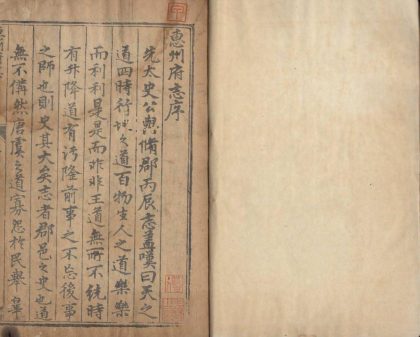 惠州府志序
先太史公輿脩郡丙辰志蓋嘆曰天之
道四時行地之道百物生人之道樂樂
而利利是是而非非王道無所不統時
有升降道有污隆前事之不忘後事
之師也則史其大矣志者郡邑之史也道
無不備然唐虞之道寡怨於民舉皋